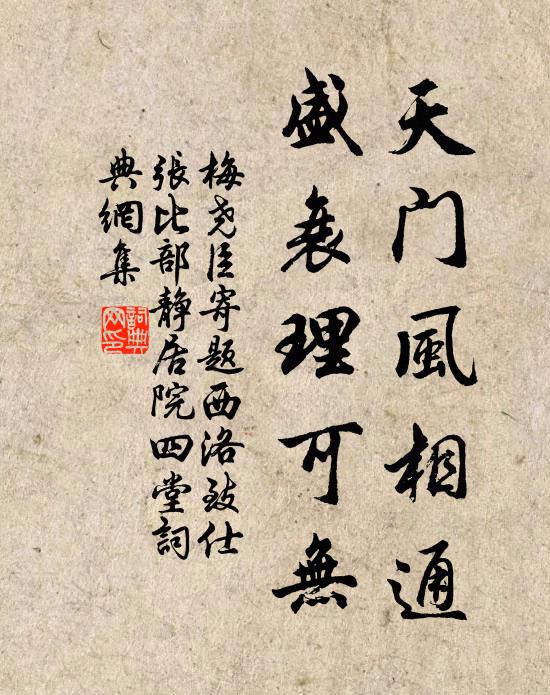 天门風相通
盛衰理可無
梅尧臣寄題西洛致仕
張比部静居院四堂詞
典網集
詞典
网印